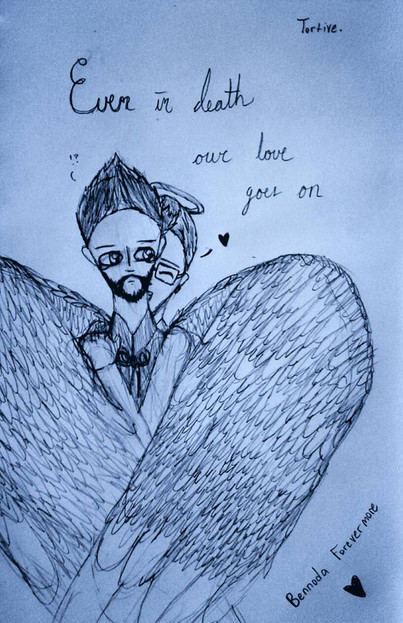 Tortive.
Even in death
our love
goes on
!?
Bennoda Forevermore